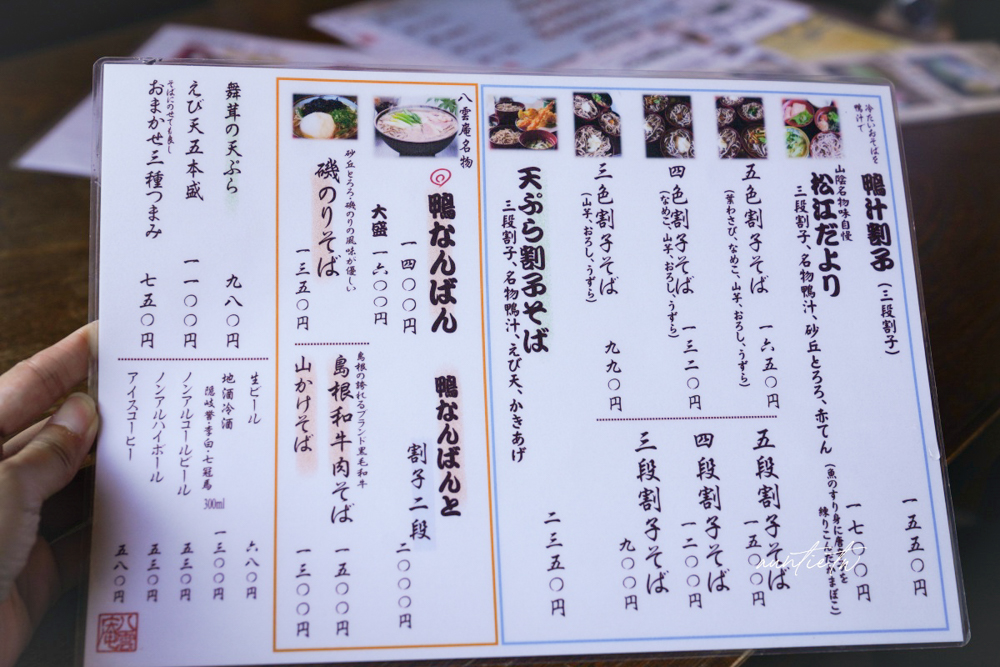 冷たいおそばを
鴨汁で
鴨汁割子（三段割子）
一五五〇円
山陰名物味自慢
松江だより
三段割子、名物鴨汁、砂丘とろろ、赤てん
一七〇〇円
五色割子そば
一六五〇円
（葉わさび、なめこ、山芋、おろし、うずら）
四色割子そば
一三二〇円
（なめこ、山芋、おろし、うずら）
三色割子そば
九九〇円
（山芋、おろし、うずら）
五段割子そば
一五〇〇円
四段割子そば
一二〇〇円
三段割子そば
九〇〇円
天ぷら割子そば
三段割子、名物鴨汁、えび天、かきあげ
二三五〇円
八雲庵名物
鴨なんばん
一四〇〇円
大盛 一六〇〇円
砂丘とろろと磯のりの風味が優しい
磯のりそば
一三五〇円
鴨なんばんと
割子二段
二〇〇〇円
島根の誇れるブランド黒毛和牛
島根和牛肉そば
一五〇〇円
山かけそば
一三〇〇円
舞茸の天ぷら
九八〇円
えび天五本盛
一一〇〇円
そばにのせても良し
おまかせ三種つまみ
七五〇円
生ビール
六八〇円
地酒冷酒
隠岐誉・李白・七冠馬
300ml
一三〇〇円
ノンアルコールビール
五三〇円
ノンアルハイボール
五三〇円
アイスコーヒー
五八〇円
八雲庵